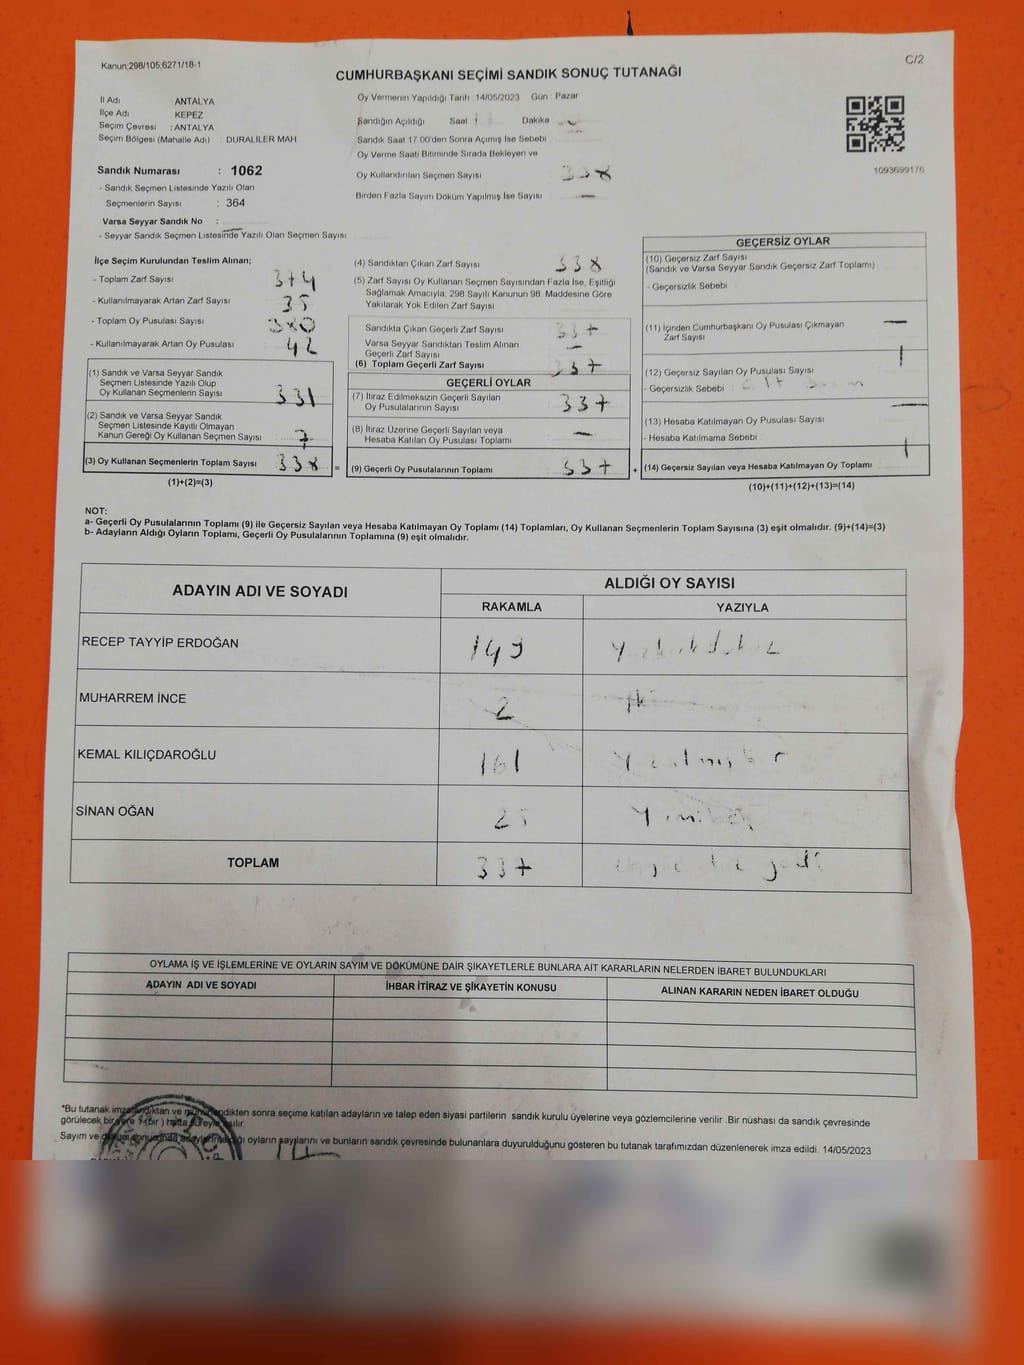 Kanun:298/105,6271/18-1
C/2
CUMHURBAŞKANI SEÇİMİ SANDIK SONUÇ TUTANAĞI
İl Adı ANTALYA
İlçe Adı KEPEZ
Seçim Çevresi : ANTALYA
Seçim Bölgesi (Mahalle Adı) : DURALİLER MAH
Sandık Numarası : 1062
- Sandık Seçmen Listesinde Yazılı Olan
Seçmenlerin Sayısı : 364
Varsa Seyyar Sandık No :
- Seyyar Sandık Seçmen Listesinde Yazılı Olan Seçmen Sayısı
Oy Vermenin Yapıldığı Tarih : 14/05/2023 Gün : Pazar
Sandığın Açıldığı Saat Dakika
Sandık Saat 17:00'den Sonra Açılmış İse Sebebi
Oy Verme Saati Bitiminde Sırada Bekleyen ve
Oy Kullandırılan Seçmen Sayısı 338
Birden Fazla Sayım Döküm Yapılmış İse Sayısı —
1093699176
İlçe Seçim Kurulundan Teslim Alınan;
- Toplam Zarf Sayısı 374
- Kullanılmayarak Artan Zarf Sayısı 35
- Toplam Oy Pusulası Sayısı 380
- Kullanılmayarak Artan Oy Pusulası 42
(1) Sandık ve Varsa Seyyar Sandık
Seçmen Listesinde Yazılı Olup
Oy Kullanan Seçmenlerin Sayısı 331
(2) Sandık ve Varsa Seyyar Sandık
Seçmen Listesinde Kayıtlı Olmayan
Kanun Gereği Oy Kullanan Seçmen Sayısı 7
(3) Oy Kullanan Seçmenlerin Toplam Sayısı 338
(1)+(2)=(3)
(4) Sandıktan Çıkan Zarf Sayısı 338
(5) Zarf Sayısı Oy Kullanan Seçmen Sayısından Fazla İse, Eşitliği
Sağlamak Amacıyla, 298 Sayılı Kanunun 98. Maddesine Göre
Yakılarak Yok Edilen Zarf Sayısı
Sandıkta Çıkan Geçerli Zarf Sayısı 337
Varsa Seyyar Sandıktan Teslim Alınan
Geçerli Zarf Sayısı —
(6) Toplam Geçerli Zarf Sayısı 337
GEÇERLİ OYLAR
(7) İtiraz Edilmeksizin Geçerli Sayılan
Oy Pusulalarının Sayısı 337
(8) İtiraz Üzerine Geçerli Sayılan veya
Hesaba Katılan Oy Pusulası Toplamı —
= (9) Geçerli Oy Pusulalarının Toplamı 337
GEÇERSİZ OYLAR
(10) Geçersiz Zarf Sayısı
(Sandık ve Varsa Seyyar Sandık Geçersiz Zarf Toplamı)
- Geçersizlik Sebebi
(11) İçinden Cumhurbaşkanı Oy Pusulası Çıkmayan
Zarf Sayısı —
(12) Geçersiz Sayılan Oy Pusulası Sayısı 1
- Geçersizlik Sebebi :
(13) Hesaba Katılmayan Oy Pusulası Sayısı —
- Hesaba Katılmama Sebebi
+ (14) Geçersiz Sayılan veya Hesaba Katılmayan Oy Toplamı 1
(10)+(11)+(12)+(13)=(14)
NOT:
a- Geçerli Oy Pusulalarının Toplamı (9) ile Geçersiz Sayılan veya Hesaba Katılmayan Oy Toplamı (14) Toplamları, Oy Kullanan Seçmenlerin Toplam Sayısına (3) eşit olmalıdır. (9)+(14)=(3)
b- Adayların Aldığı Oyların Toplamı, Geçerli Oy Pusulalarının Toplamına (9) eşit olmalıdır.
ADAYIN ADI VE SOYADI
ALDIĞI OY SAYISI
RAKAMLA YAZIYLA
RECEP TAYYİP ERDOĞAN 149
MUHARREM İNCE 2 İki
KEMAL KILIÇDAROĞLU 161
SİNAN OĞAN 25
TOPLAM 337
OYLAMA İŞ VE İŞLEMLERİNE VE OYLARIN SAYIM VE DÖKÜMÜNE DAİR ŞİKAYETLERLE BUNLARA AİT KARARLARIN NELERDEN İBARET BULUNDUKLARI
ADAYIN ADI VE SOYADI
İHBAR İTİRAZ VE ŞİKAYETİN KONUSU
ALINAN KARARIN NEDEN İBARET OLDUĞU
*Bu tutanak imzalandıktan ve mühürlendikten sonra seçime katılan adayların ve talep eden siyasi partilerin sandık kurulu üyelerine veya gözlemcilerine verilir. Bir nüshası da sandık çevresinde
görülecek bir yere 1 (bir) hafta süreyle asılır.
Sayım ve döküm sonucunda adayların aldığı oyların sayılarını ve bunların sandık çevresinde bulunanlara duyurulduğunu gösteren bu tutanak tarafımızdan düzenlenerek imza edildi. 14/05/2023